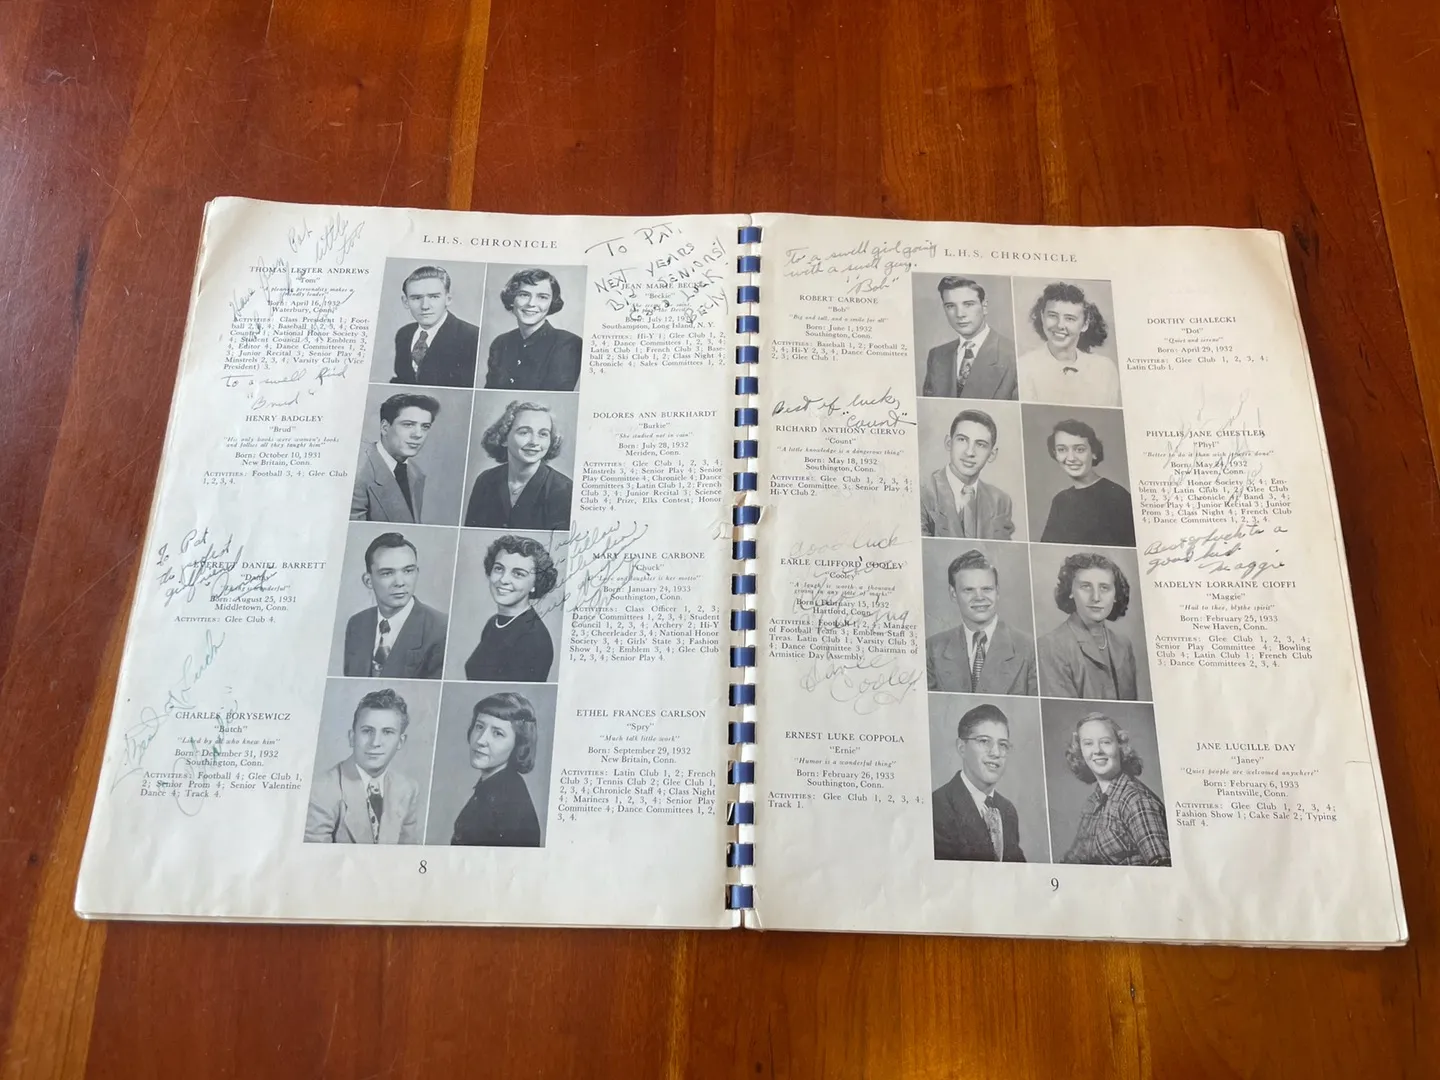 L.H.S. CHRONICLE
THOMAS LESTER ANDREWS
"Tom"
"A pleasing personality makes a
friendly leader"
Born: April 16, 1932
Waterbury, Conn.
ACTIVITIES: Class President 1; Foot-
ball 2, 3, 4; Baseball 1, 2, 3, 4; Cross
Country 1; National Honor Society 3,
4; Student Council 3, 4; Emblem 3,
4, Editor 4; Dance Committees 1, 2,
3; Junior Recital 3; Senior Play 4;
Minstrels 2, 3, 4; Varsity Club (Vice
President) 3.
To a swell
"Brud"
HENRY BADGLEY
"Brud"
"His only books were women's looks
and follies all they taught him"
Born: October 10, 1931
New Britain, Conn.
ACTIVITIES: Football 3, 4; Glee Club
1, 2, 3, 4.
To Pat
EVERETT DANIEL BARRETT
Born: August 25, 1931
Middletown, Conn.
ACTIVITIES: Glee Club 4.
Best of Luck
CHARLES BORYSEWICZ
"Butch"
"Liked by all who knew him"
Born: December 31, 1932
Southington, Conn.
ACTIVITIES: Football 4; Glee Club 1,
2; Senior Prom 4; Senior Valentine
Dance 4; Track 4.
TO PAT,
NEXT YEARS
BIG SENIORS!
GOOD LUCK
BECKY
JEAN MARIE
"Beckie"
July 12,
Southampton, Long Island, N. Y.
ACTIVITIES: Hi-Y 1; Glee Club 1, 2,
3, 4; Dance Committees 1, 2, 3, 4;
Latin Club 1; French Club 3; Base-
ball 2; Ski Club 1, 2; Class Night 4;
Chronicle 4; Sales Committees 1, 2,
3, 4.
DOLORES ANN BURKHARDT
"Burkie"
"She studied not in vain"
Born: July 28, 1932
Meriden, Conn.
ACTIVITIES: Glee Club 1, 2, 3, 4;
Minstrels 3, 4; Senior Play 4; Senior
Play Committee 4; Chronicle 4; Dance
Committees 3; Latin Club 1, 2; French
Club 3, 4; Junior Recital 3; Science
Club 4; Prize, Elks Contest; Honor
Society 4.
MARY ELAINE CARBONE
"Chuck"
"Love and laughter is her motto"
Born: January 24, 1933
Southington, Conn.
ACTIVITIES: Class Officer 1, 2, 3;
Dance Committees 1, 2, 3, 4; Student
Council 1, 2, 3, 4; Archery 2; Hi-Y
2, 3; Cheerleader 3, 4; National Honor
Society 3, 4; Girls' State 3; Fashion
Show 1, 2; Emblem 3, 4; Glee Club
1, 2, 3, 4; Senior Play 4.
ETHEL FRANCES CARLSON
"Spry"
"Much talk little work"
Born: September 29, 1932
New Britain, Conn.
ACTIVITIES: Latin Club 1, 2; French
Club 3; Tennis Club 2; Glee Club 1,
2, 3, 4; Chronicle Staff 4; Class Night
4; Mariners 1, 2, 3, 4; Senior Play
Committee 4; Dance Committees 1, 2,
3, 4.
8
L.H.S. CHRONICLE
To a swell girl going
with a swell guy.
"Bob"
ROBERT CARBONE
"Bob"
"Big and tall, and a smile for all"
Born: June 1, 1932
Southington, Conn.
ACTIVITIES: Baseball 1, 2; Football 2,
3, 4; Hi-Y 2, 3, 4; Dance Committees
2, 3; Glee Club 1.
Best of luck,
"Count"
RICHARD ANTHONY CIERVO
"Count"
"A little knowledge is a dangerous thing"
Born: May 18, 1932
Southington, Conn.
ACTIVITIES: Glee Club 1, 2, 3, 4;
Dance Committee 3; Senior Play 4;
Hi-Y Club 2.
Good luck
EARLE CLIFFORD COOLEY
"Cooley"
"A laugh is worth a thousand
groans in any state of market"
Born: February 15, 1932
Hartford, Conn.
ACTIVITIES: Football 1, 2, 4; Manager
of Football Team 3; Emblem Staff 3;
Treas. Latin Club 1; Varsity Club 3,
4; Dance Committee 3; Chairman of
Armistice Day Assembly.
Cooley
ERNEST LUKE COPPOLA
"Ernie"
"Humor is a wonderful thing"
Born: February 26, 1933
Southington, Conn.
ACTIVITIES: Glee Club 1, 2, 3, 4;
Track 1.
DORTHY CHALECKI
"Dot"
"Quiet and serene"
Born: April 29, 1932
ACTIVITIES: Glee Club 1, 2, 3, 4;
Latin Club 1.
PHYLLIS JANE CHESTLER
"Phyl"
"Better to do it than wish it were done"
Born: May 24, 1932
New Haven, Conn.
ACTIVITIES: Honor Society 3, 4; Em-
blem 4; Latin Club 1, 2; Glee Club
1, 2, 3, 4; Chronicle 4; Band 3, 4;
Senior Play 4; Junior Recital 3; Junior
Prom 3; Class Night 4; French Club
4; Dance Committees 1, 2, 3, 4.
Best of luck to a
good kid
Maggie
MADELYN LORRAINE CIOFFI
"Maggie"
"Hail to thee, blythe spirit"
Born: February 25, 1933
New Haven, Conn.
ACTIVITIES: Glee Club 1, 2, 3, 4;
Senior Play Committee 4; Bowling
Club 4; Latin Club 1; French Club
3; Dance Committees 2, 3, 4.
JANE LUCILLE DAY
"Janey"
"Quiet people are welcomed anywhere"
Born: February 6, 1933
Plantsville, Conn.
ACTIVITIES: Glee Club 1, 2, 3, 4;
Fashion Show 1; Cake Sale 2; Typing
Staff 4.
9